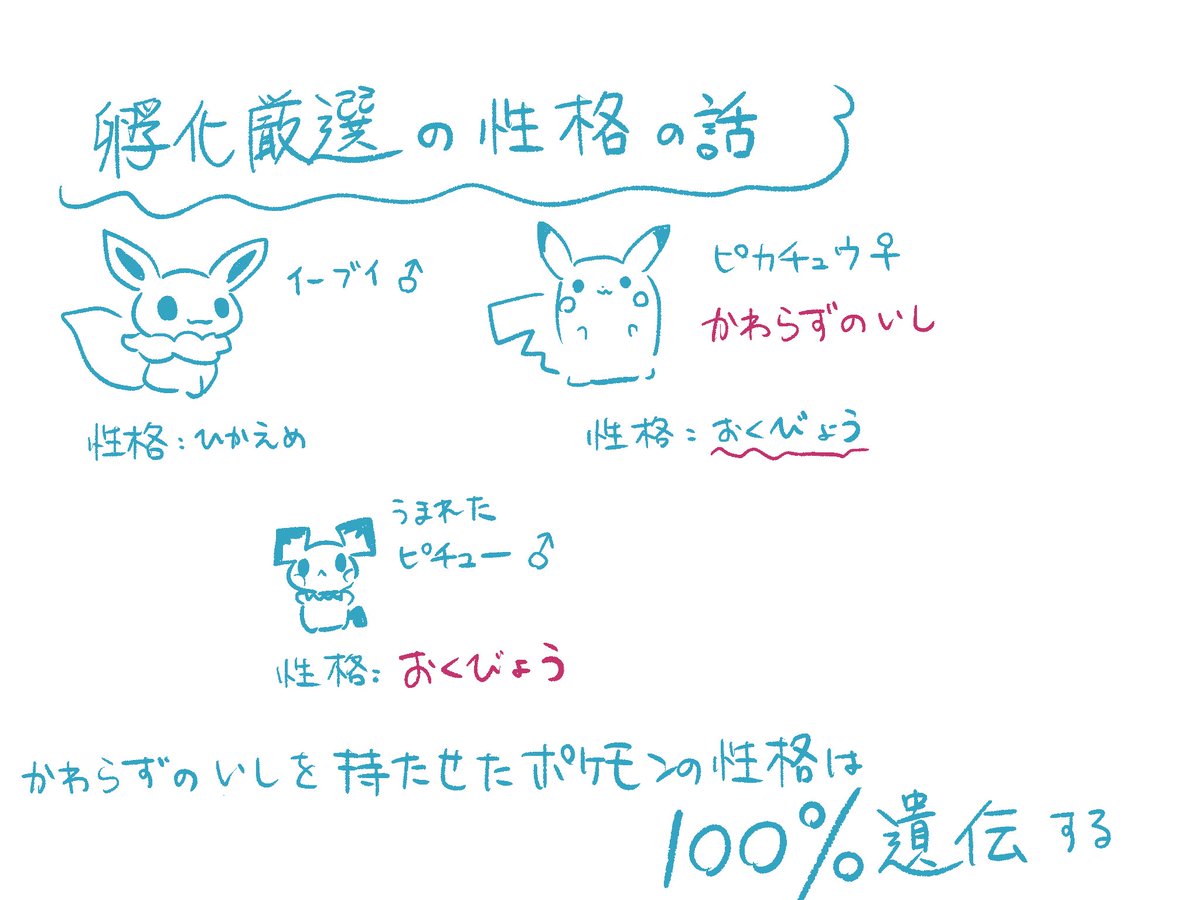 孵化厳選の性格の話
イーブイ♂
性格:ひかえめ
ピカチュウ♀
かわらずのいし
性格:おくびょう
うまれた
ピチュー♂
性格:おくびょう
かわらずのいしを持たせたポケモンの性格は
100%遺伝する